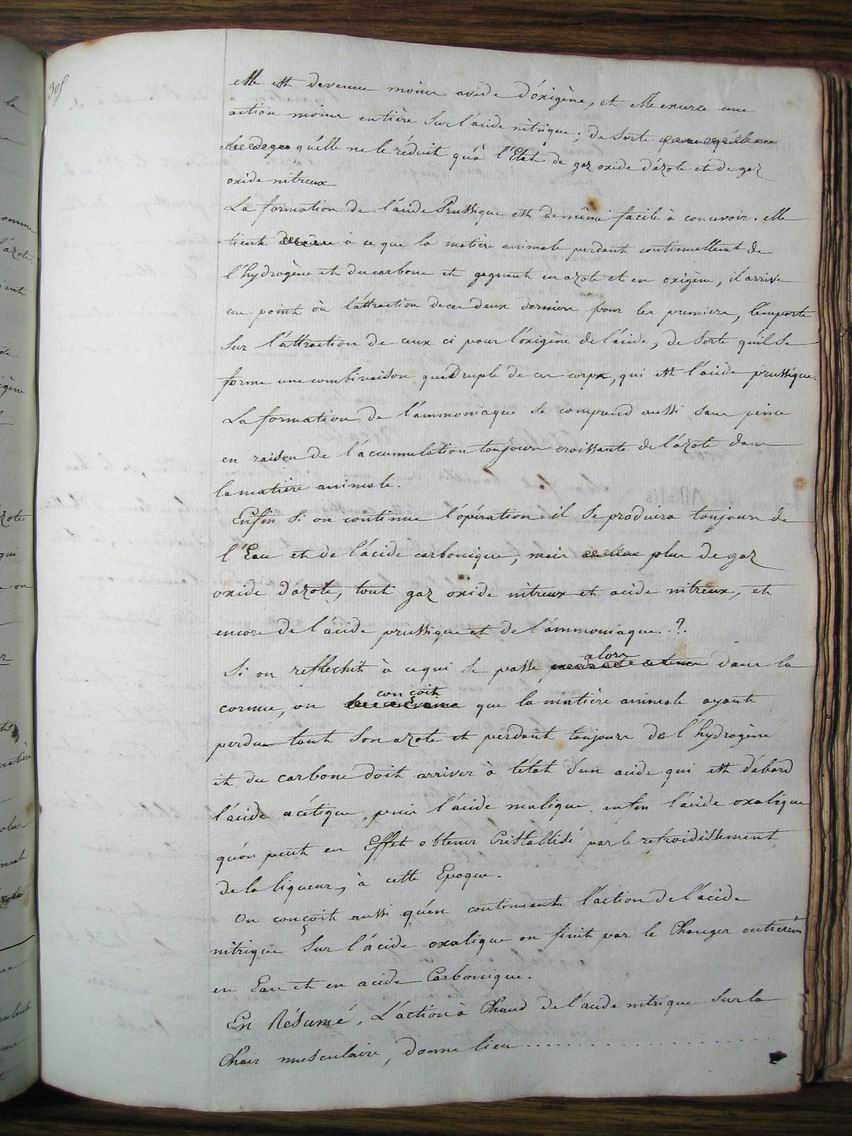 305
elle est devenue moins avide d'oxigène, et elle exerce une
action moins entière sur l'acide nitrique; de sorte
qu'elle ne le réduit qu'à l'Etat de gaz oxide d'azote et de gaz
oxide nitreux
La formation de l'acide Prussique est de même facile à concevoir. elle
tient à ce que la matière animale perdant continuellement de
l'hydrogène et du carbone et gagnant en azote et en oxigène, il arrive
un point où l'attraction de ces deux derniers pour les premiers, l'emporte
sur l'attraction de ceux ci pour l'oxigène de l'acide, de sorte qu'il se
forme une combinaison quadruple de ces corps, qui est l'acide prussique.
La formation de l'ammoniaque se comprend aussi sans peine
en raison de l'accumulation toujours croissante de l'azote dans
la matière animale.
Enfin si on continue l'opération il se produira toujours de
l'Eau et de l'acide carbonique, mais plus de gaz
oxide d'azote, tout gaz oxide nitreux et acide nitreux, et
encore de l'acide prussique et de l'ammoniaque..?.
Si on reflechit à ce qui se passe alors dans la
cornue, on conçoit que la matière animale ayant
perdue tout son azote et perdant toujours de l'hydrogène
et du carbone doit arriver à l'etat d'un acide qui est d'abord
l'acide acétique, puis l'acide malique, enfin l'acide oxalique
qu'on peut en Effet obtenir Cristallisé par le refroidissement
de la liqueur, à cette Epoque.
On conçoit aussi qu'en continuant l'action de l'acide
nitrique sur l'acide oxalique on finit par le Changer entièrem
en Eau et en acide Carbonique.
En Résumé, L'action à Chaud de l'acide nitrique sur la
Chair musculaire, donne lieu . . . . . . . . . . . . . . . . . .